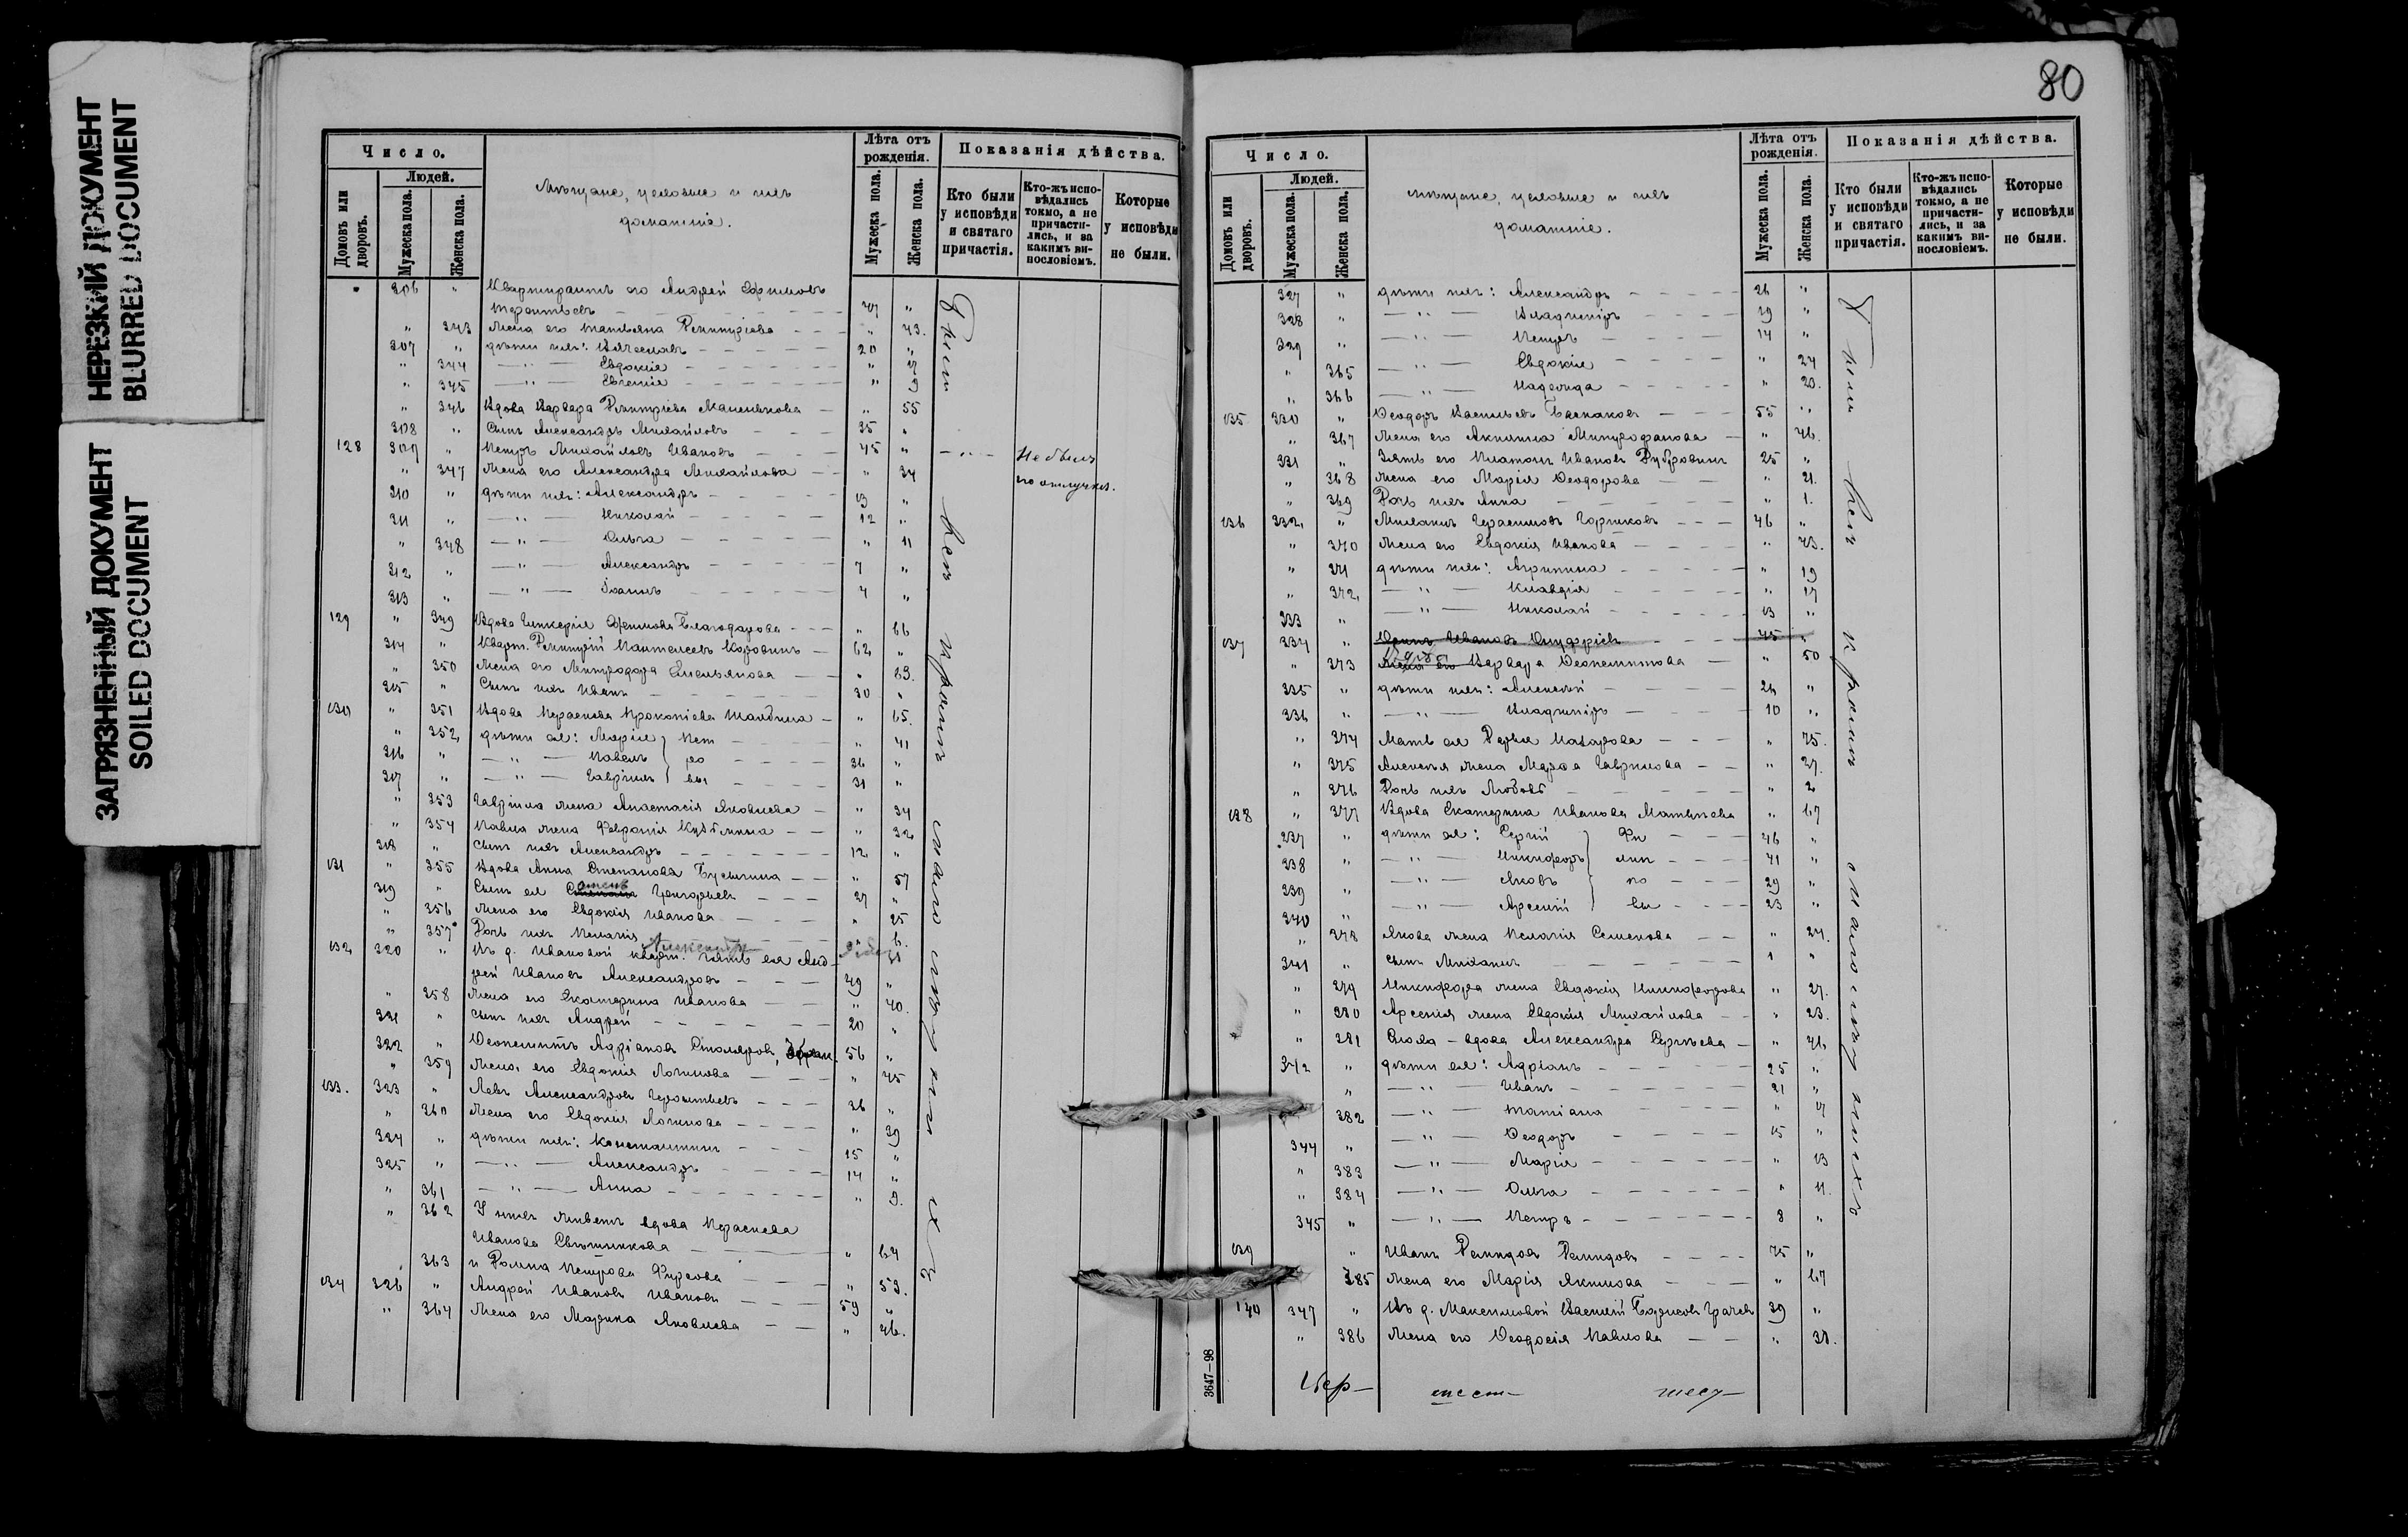 НЕРЕЗКИЙ ДОКУМЕНТ
BLURRED DOCUMENT
ЗАГРЯЗНЕННЫЙ ДОКУМЕНТ
SOILED DOCUMENT
Число.
Людей.
Домовъ или дворовъ.
Мужеска пола.
Женска пола.
Мѣщане, цеховые и ихъ
домашніе.
Лѣта отъ рожденія.
Мужеска пола.
Женска пола.
Показанія дѣйства.
Кто были у исповѣди и святаго причастія.
Кто-жъ исповѣдались токмо, а не причастились, и за какимъ винословіемъ.
Которые у исповѣди не были.
306 " Квартирантъ его Андрей Ефимовъ
Терентьевъ 47 "
" 343 Жена его Татьяна Димитріева " 43.
307 " дѣти ихъ: Вячеславъ 20 "
" 344 — " — Евдокія "
" 345 — " — Евгенія " 9
" 346 Вдова Варвара Димитріева " 55
308 " Сынъ Александръ Михайловъ 35 "
128 309 " Петръ Михайловъ Ивановъ 45 " — " — Не былъ
" 347 Жена его Александра Михайлова " 34 по отлучкѣ.
310 " дѣти ихъ: Александръ 13 "
311 " — " — Николай 12 "
" 348 — " — Ольга " 11
312 " — " — Александръ 7 "
313 " — " — Іоаннъ 4 "
129 " 349 Вдова Гликерія Ефимова Благодарова " 66
314 " Кварт. Димитрій Пантелеевъ Коровинъ 62 "
" 350 Жена его Митродора Емельянова " 63.
315 " Сынъ ихъ Иванъ 30 "
130 " 351 Вдова Параскева Прокопіева " 65.
" 352 дѣти ея: Марія " 41
316 " — " — Павелъ 36 "
317 " — " — Гавріилъ 31 "
" 353 Гавріила жена Анастасія Яковлева " 34
" 354 Павла жена Февронія " 32
318 " Сынъ ихъ Александръ 12 "
131 " 355 Вдова Анна Степанова " 57
319 " Сынъ ея Григорьевъ 27 "
" 356 Жена его Евдокія Иванова " 25
" 357 Дочь ихъ Пелагія " 6.
132 320 " Въ д. Ивановой кварт. зять ея Анд-
рей Ивановъ Александровъ 49 "
" 358 Жена его Екатерина Иванова " 40.
321 " Сынъ ихъ Андрей 20 "
322 " Феопемптъ Адріановъ Столяровъ 56 "
" 359 Жена его Евдокія Логинова " 45
133. 323 " Левъ Александровъ 36 "
" 360 Жена его Евдокія Логинова " 39
324 " дѣти ихъ: Константинъ 15 "
325 " — " — Александръ 14 "
" 361 — " — Анна " 9.
" 362 У нихъ живетъ вдова Параскева
Иванова Свѣшникова " 64
363 и Домна Петрова Фирсова " 53.
134 326 " Андрей Ивановъ Ивановъ 59 "
" 364 Жена его Марѳа Яковлева " 46.
80
Число.
Людей.
Домовъ или дворовъ.
Мужеска пола.
Женска пола.
мѣщане, цеховые и ихъ
домашніе.
Лѣта отъ рожденія.
Мужеска пола.
Женска пола.
Показанія дѣйства.
Кто были у исповѣди и святаго причастія.
Кто-жъ исповѣдались токмо, а не причастились, и за какимъ винословіемъ.
Которые у исповѣди не были.
327 " дѣти ихъ: Александръ 26 "
328 " — " — Владиміръ 19 "
329 " — " — Петръ 14 "
" 365 — " — Евдокія " 24
" 366 — " — Надежда " 20.
135 330 " Феодоръ Васильевъ Баскаковъ 55 "
" 367 Жена его Акилина Митрофанова " 46.
331 " Зять его Платонъ Ивановъ Дубровинъ 25 "
" 368 Жена его Марія Феодорова " 21.
" 369 Дочь ихъ Анна " 1.
136 332 " Михаилъ Герасимовъ Горшковъ 46 "
" 370 Жена его Евдокія Иванова " 43.
" 371 дѣти ихъ: Агрипина " 19
" 372 — " — Клавдія " 17
333 " — " — Николай 13 "
137 334 " Ивановъ Онуфріевъ 45 "
" 373 Вдова Варвара Феопемптова " 50
335 " дѣти ихъ: Алексѣй 24 "
336 " — " — Владиміръ 10 "
" 374 Мать ея Дарья Назарова " 75.
" 375 Алексѣя жена Марѳа Гаврилова " 27.
" 376 Дочь ихъ Любовь " 2
138 " 377 Вдова Екатерина Иванова " 67
337 " дѣти ея: Сергій 46 "
338 " — " — Никифоръ 41 "
339 " — " — Яковъ 29 "
340 " — " — Арсеній 23 "
" 378 Якова жена Пелагія Семенова " 27.
341 " Сынъ Михаилъ 1 "
" 379 Никифора жена Евдокія Никифорова " 27.
" 380 Арсенія жена Евдокія Михайлова " 23.
" 381 Сноха - вдова Александра Сергѣева " 46
342 " дѣти ея: Адріанъ 25 "
" — " — Иванъ 21 "
382 — " — Татіана " 17
344 " — " — Феодоръ 15 "
" 383 — " — Марія " 13
" 384 — " — Ольга " 11.
345 " — " — Петръ 8 "
139 " Иванъ Демидовъ Демидовъ 75 "
385 Жена его Марія Якимова " 67
140 347 " Въ д. Максимовой Василій Борисовъ Грачевъ 39 "
" 386 Жена его Феодосія Павлова " 38.
3647—98